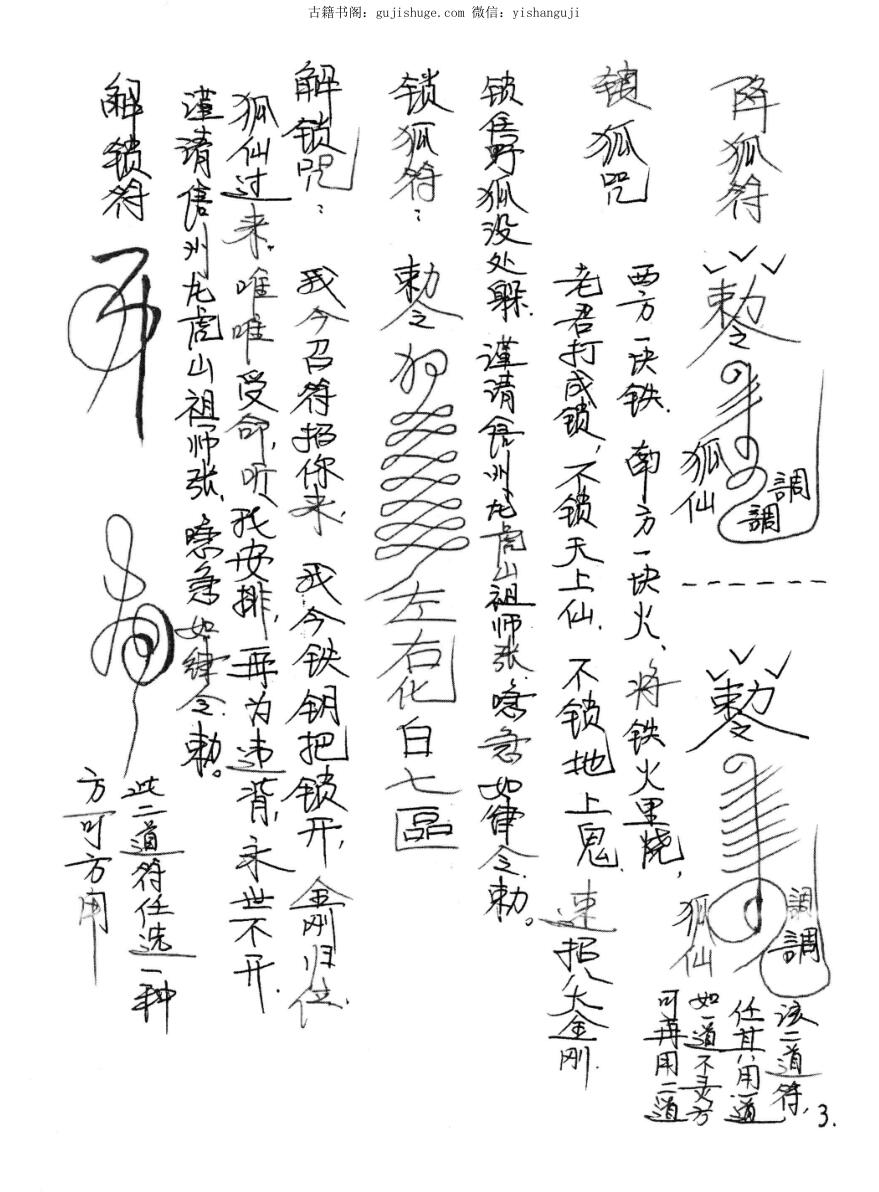 古籍书阁：gujishuge.com 微信：yishanguji
降狐符
敕令
狐仙
調
調
敕令
狐仙
調
調
该二道符，
任其八用一道
如一道不灵方
可再用二道
锁狐咒
西方一块铁，南方一块火，将铁火里烧，
老君打成锁，不锁天上仙，不锁地上鬼，速招八大金刚，
锁住野狐没处躲，谨请信州龙虎山祖师张，噫急如律令敕。
锁狐符：
敕令
左右化白七區
解锁咒：我今召符招你来，我今铁钥把锁开，金刚归位，
狐仙过来。唯唯受命，听我安排，再为违背，永世不开，
谨请信州龙虎山祖师张，噫急如律令敕。
解锁符
此二道符任选一种
方可方用
3.